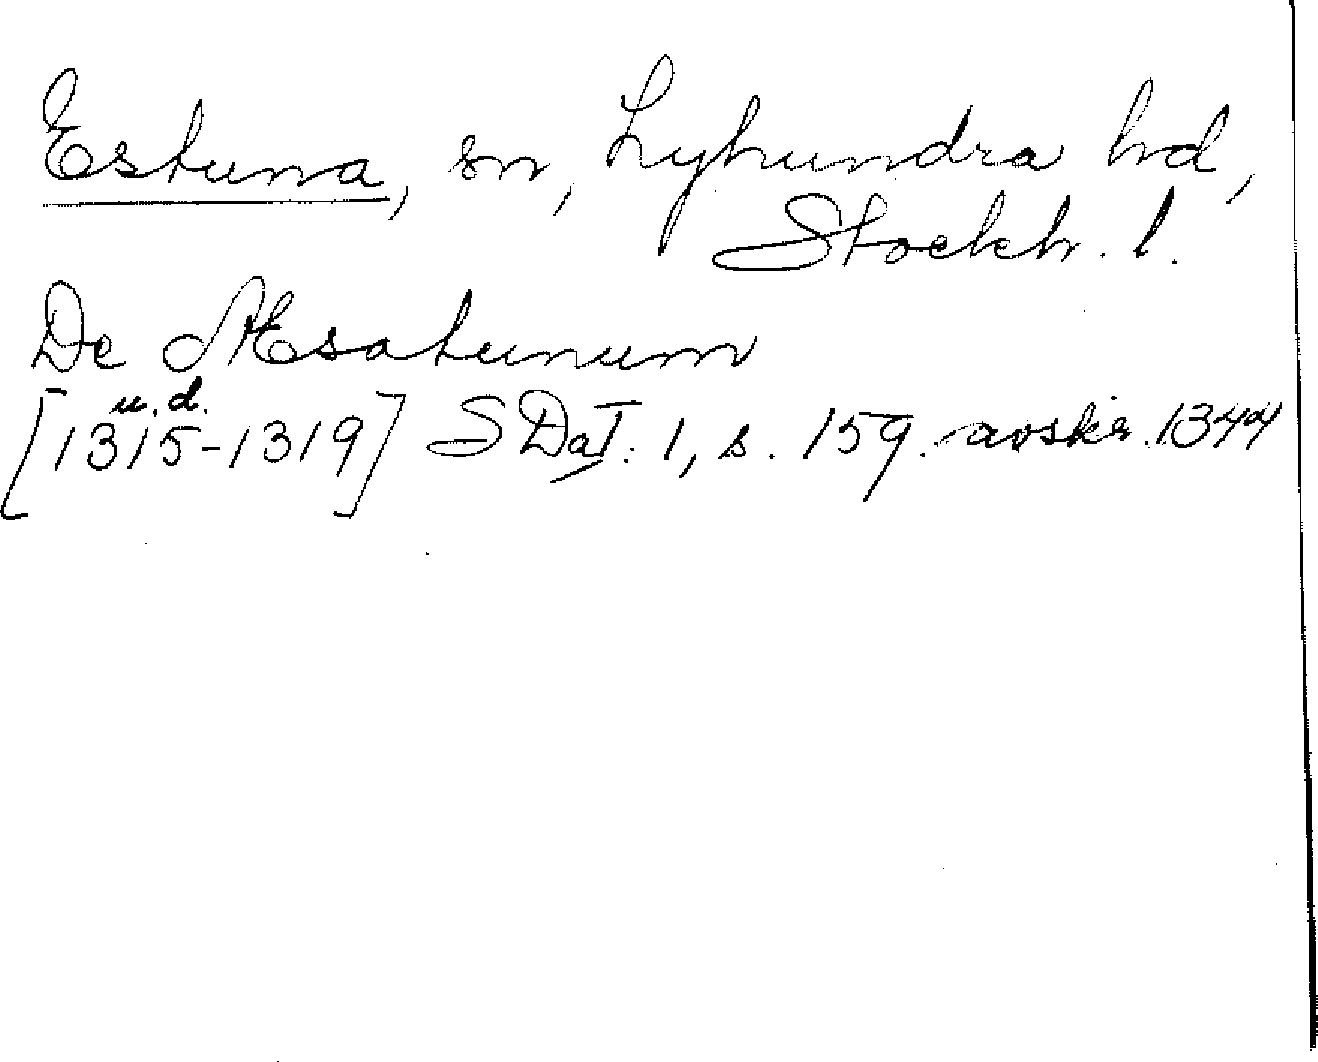 Estuna, sn, Lyhundra hd,
Stockh. l.
De Æsatunum
u. d.
[1315-1319] SDaT. 1, s. 159. avskr. 1344